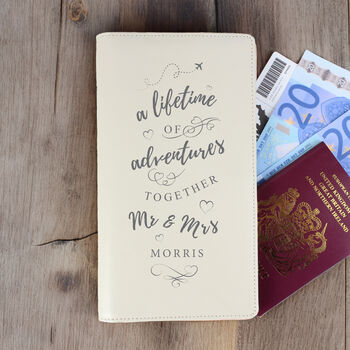 a lifetime
OF
adventures
TOGETHER
Mr & Mrs
MORRIS
20
20
EUROPEAN UNION
UNITED KINGDOM OF
GREAT BRITAIN
AND NORTHERN IRELAND